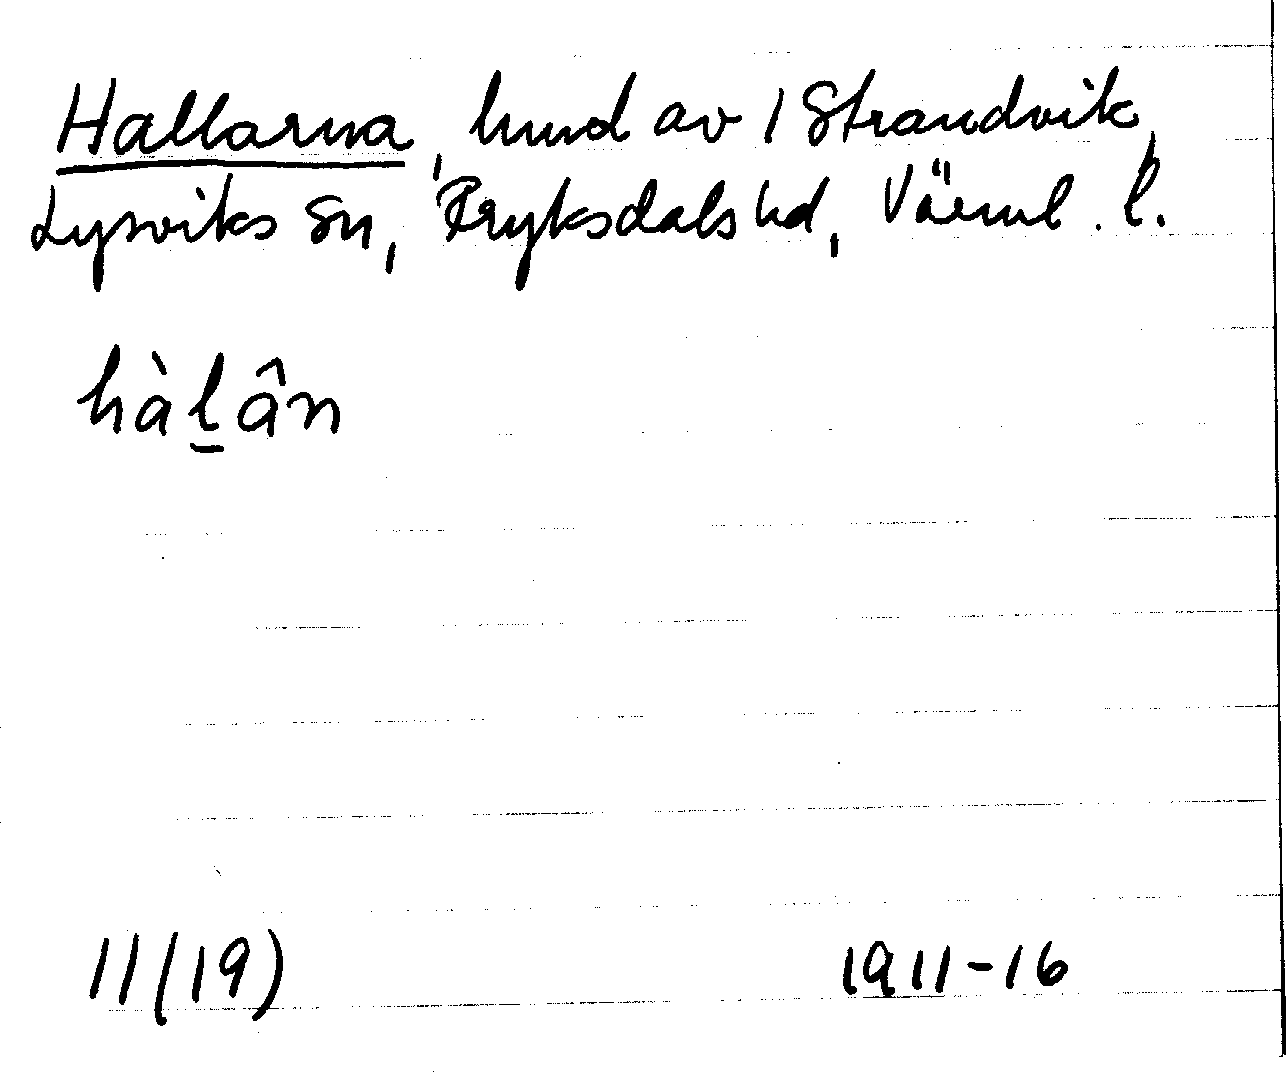 Hallarna, lund av 1 Strandvik,
Lysviks sn, Fryksdals hd, Värml. l.
hàl̲ân
11(19) 1911-16